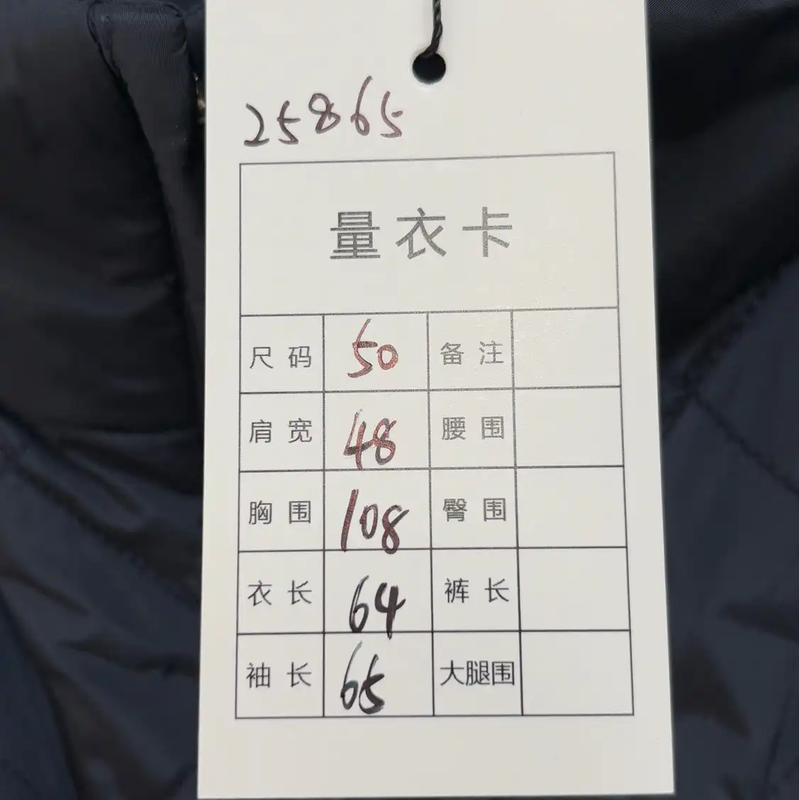 25865
量衣卡
尺码 50 备注
肩宽 48 腰围
胸围 108 臀围
衣长 64 裤长
袖长 65 大腿围